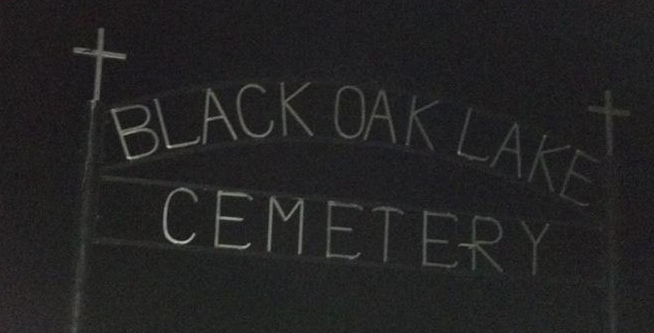 BLACK OAK LAKE
CEMETERY